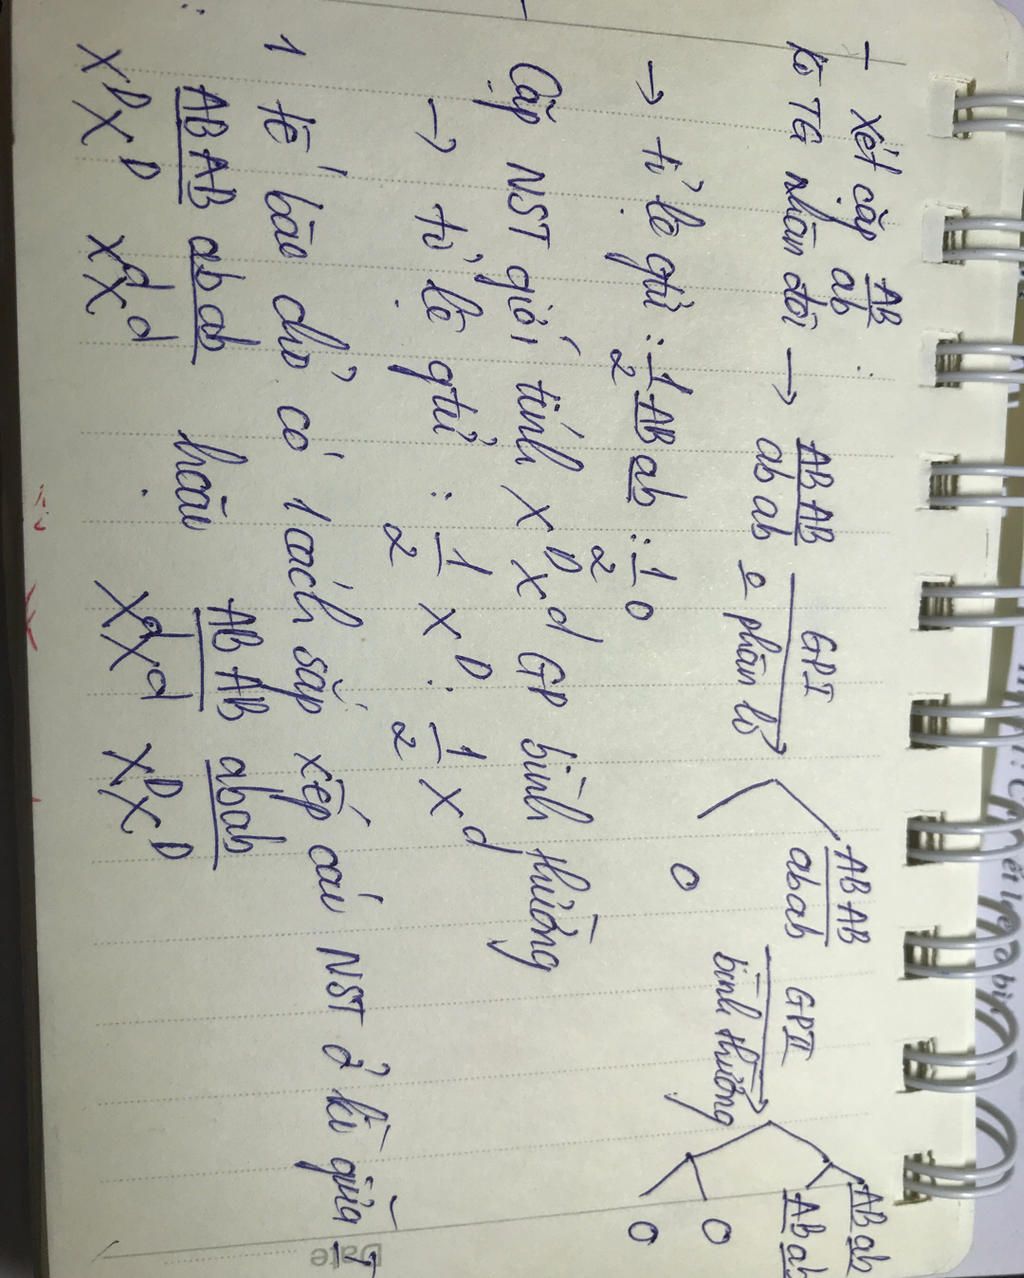 - Xét cặp AB/ab :
Kì TG nhân đôi → ABAB/abab GPI ko phân li ABAB/abab GPII bình thường AB ab
AB ab
O
O
O
→ tỉ lệ gtử : 1/2 AB ab : 1/2 O
Cặp NST giới tính X^D X^d GP bình thường
→ tỉ lệ gtử : 1/2 X^D : 1/2 X^d
1 tế bào chỉ có 1 cách sắp xếp các NST ở kì giữa I
: ABAB abab hoặc ABAB abab
X^D X^D X^d X^d X^d X^d X^D X^D
Date